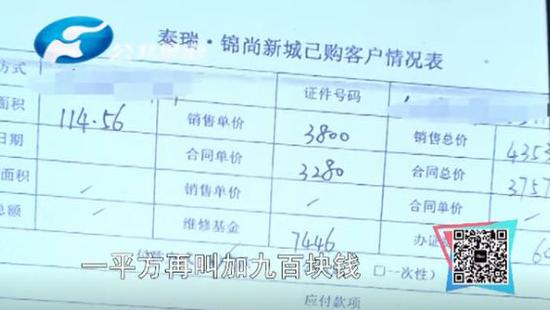 泰瑞·锦尚新城已购客户情况表
方式 证件号码
面积 114.56 销售单价 3800 销售总价 4353
日期 合同单价 3280 合同总价 3757
面积 / 销售单价 / 合同单价 /
总额 / 维修基金 7446 办证
一平方再叫加九百块钱
□一次性）
应付款项